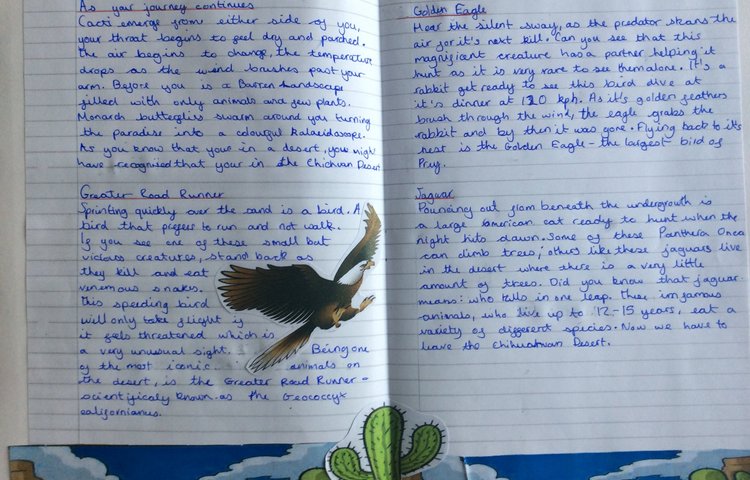 As your journey continues
Cacti emerge from either side of you,
your throat begins to feel dry and parched.
The air begins to change, the temperature
drops as the wind brushes past your
arm. Before you is a Barren Landscape
filled with only animals and few plants.
Monarch butterflies swarm around you turning
the paradise into a colourful Kalaeidoscope.
As you know that your in a desert, you might
have recognised that your in the Chichuan Desert
Greater Road Runner
Sprinting quickly over the sand is a bird. A
bird that prefers to run and not walk.
If you see one of these small but
vicious creatures, stand back as
they kill and eat
venemous snakes.
This speeding bird
will only take flight if
it feels threatened which is
a very unusual sight. Being one
of the most iconic animals on
the desert, is the Greater Road Runner -
scientificaly known as the Geococcyx
californianus.
Golden Eagle
Hear the silent sway, as the predator skans the
air for it's next kill. Can you see that this
magnificant creature has a partner helping it
hunt as it is very rare to see them alone. It's a
rabbit get ready to see this bird dive at
it's dinner at 120 kph. As it's golden feathers
brush through the wind, the eagle grabs the
rabbit and by then it was gone. Flying back to it's
nest is the Golden Eagle - the largest bird of
Prey.
Jaguar
Pouncing out from beneath the undergrowth is
a large American cat ready to hunt when the
night hits dawn. Some of these Panthera Onca
can climb trees; others like these jaguars live
in the desert where there is a very little
amount of trees. Did you know that jaguar
means: who kills in one leap. These infamous
animals, who live up to 12-15 years, eat a
variety of different species. Now we have to
leave the Chihuahuan Desert.